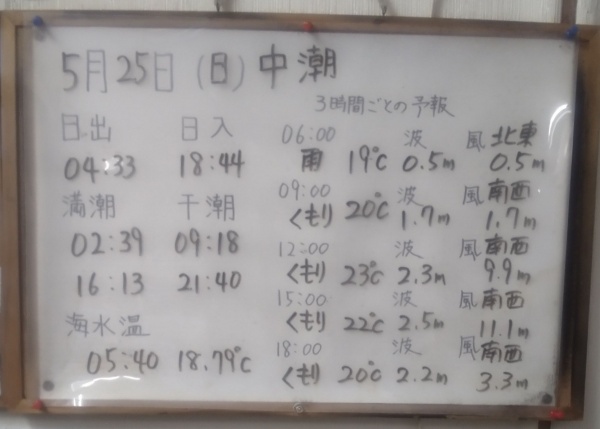 5月25日(日)中潮
3時間ごとの予報
日出 日入
04:33 18:44
満潮 干潮
02:39 09:18
16:13 21:40
海水温
05:40 18.79℃
06:00 波 風北東
雨 19℃ 0.5m 0.5m
09:00 波 風南西
くもり 20℃ 1.7m 1.7m
12:00 波 風南西
くもり 23℃ 2.3m 9.9m
15:00 波 風南西
くもり 22℃ 2.5m 11.1m
18:00 波 風南西
くもり 20℃ 2.2m 3.3m